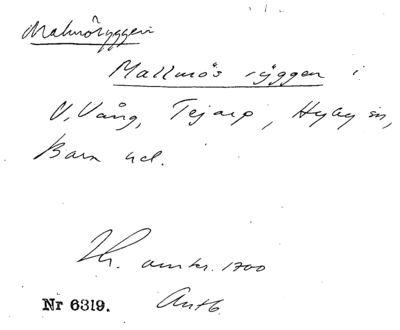 Malmöryggen
Mallmös ryggen i
V, Vång, Tejarp, Hyby sn,
Bara hd.
Lk. omkr. 1700
Nr 6319. Antb.